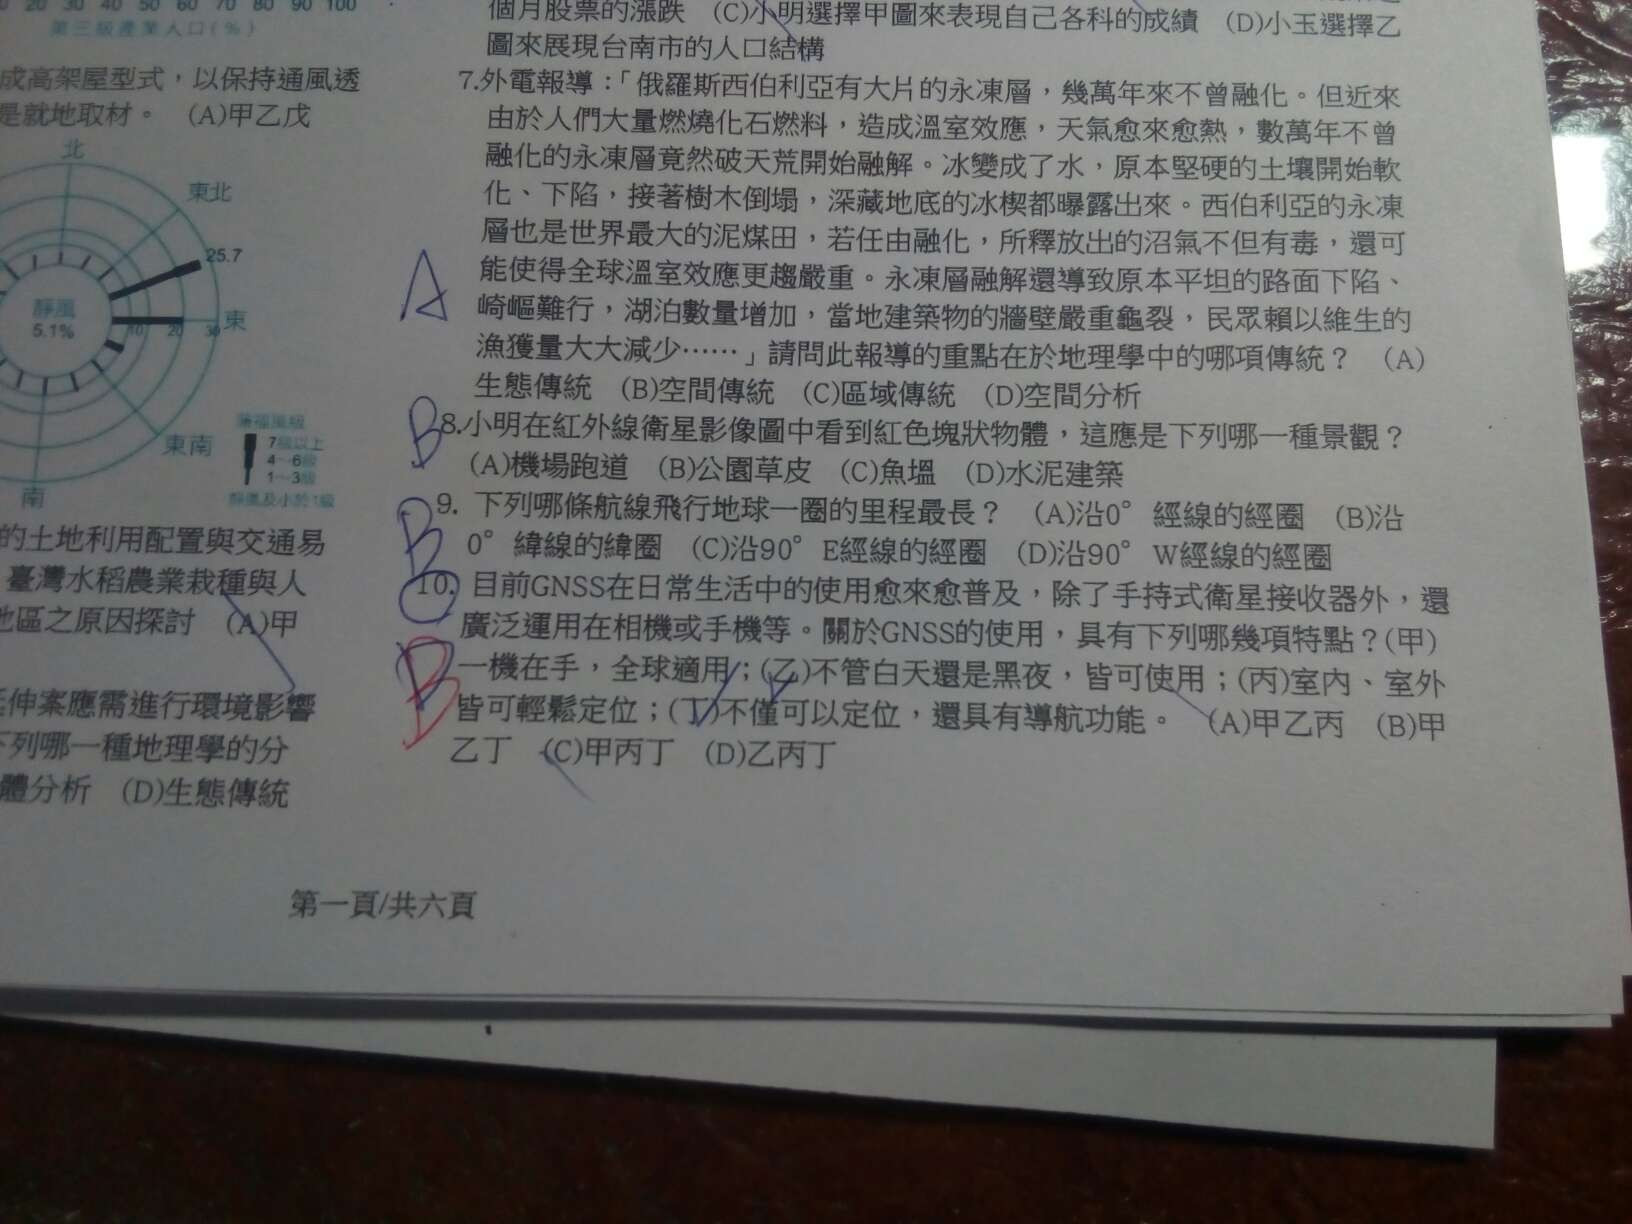 20 30 40 50 60 70 80 90 100
第三級產業人口(%)
成高架屋型式，以保持通風透
是就地取材。 (A)甲乙戊
北
東北
25.7
靜風
5.1%
10 20 30 東
東南
南
7級以上
4～6級
1～3級
靜風及小於1級
的土地利用配置與交通易
臺灣水稻農業栽種與人
地區之原因探討 (A)甲
伸案應需進行環境影響
下列哪一種地理學的分
體分析 (D)生態傳統
個月股票的漲跌 (C)小明選擇甲圖來表現自己各科的成績 (D)小玉選擇乙
圖來展現台南市的人口結構
7.外電報導：「俄羅斯西伯利亞有大片的永凍層，幾萬年來不曾融化。但近來
由於人們大量燃燒化石燃料，造成溫室效應，天氣愈來愈熱，數萬年不曾
融化的永凍層竟然破天荒開始融解。冰變成了水，原本堅硬的土壤開始軟
化、下陷，接著樹木倒塌，深藏地底的冰楔都曝露出來。西伯利亞的永凍
層也是世界最大的泥煤田，若任由融化，所釋放出的沼氣不但有毒，還可
能使得全球溫室效應更趨嚴重。永凍層融解還導致原本平坦的路面下陷、
A 崎嶇難行，湖泊數量增加，當地建築物的牆壁嚴重龜裂，民眾賴以維生的
漁獲量大大減少……」請問此報導的重點在於地理學中的哪項傳統？ (A)
生態傳統 (B)空間傳統 (C)區域傳統 (D)空間分析
B 8.小明在紅外線衛星影像圖中看到紅色塊狀物體，這應是下列哪一種景觀？
(A)機場跑道 (B)公園草皮 (C)魚塭 (D)水泥建築
B 9. 下列哪條航線飛行地球一圈的里程最長？ (A)沿0°經線的經圈 (B)沿
0°緯線的緯圈 (C)沿90°E經線的經圈 (D)沿90°W經線的經圈
10. 目前GNSS在日常生活中的使用愈來愈普及，除了手持式衛星接收器外，還
廣泛運用在相機或手機等。關於GNSS的使用，具有下列哪幾項特點？(甲)
B 一機在手，全球適用；(乙)不管白天還是黑夜，皆可使用；(丙)室內、室外
皆可輕鬆定位；(丁)不僅可以定位，還具有導航功能。 (A)甲乙丙 (B)甲
乙丁 (C)甲丙丁 (D)乙丙丁
第一頁/共六頁